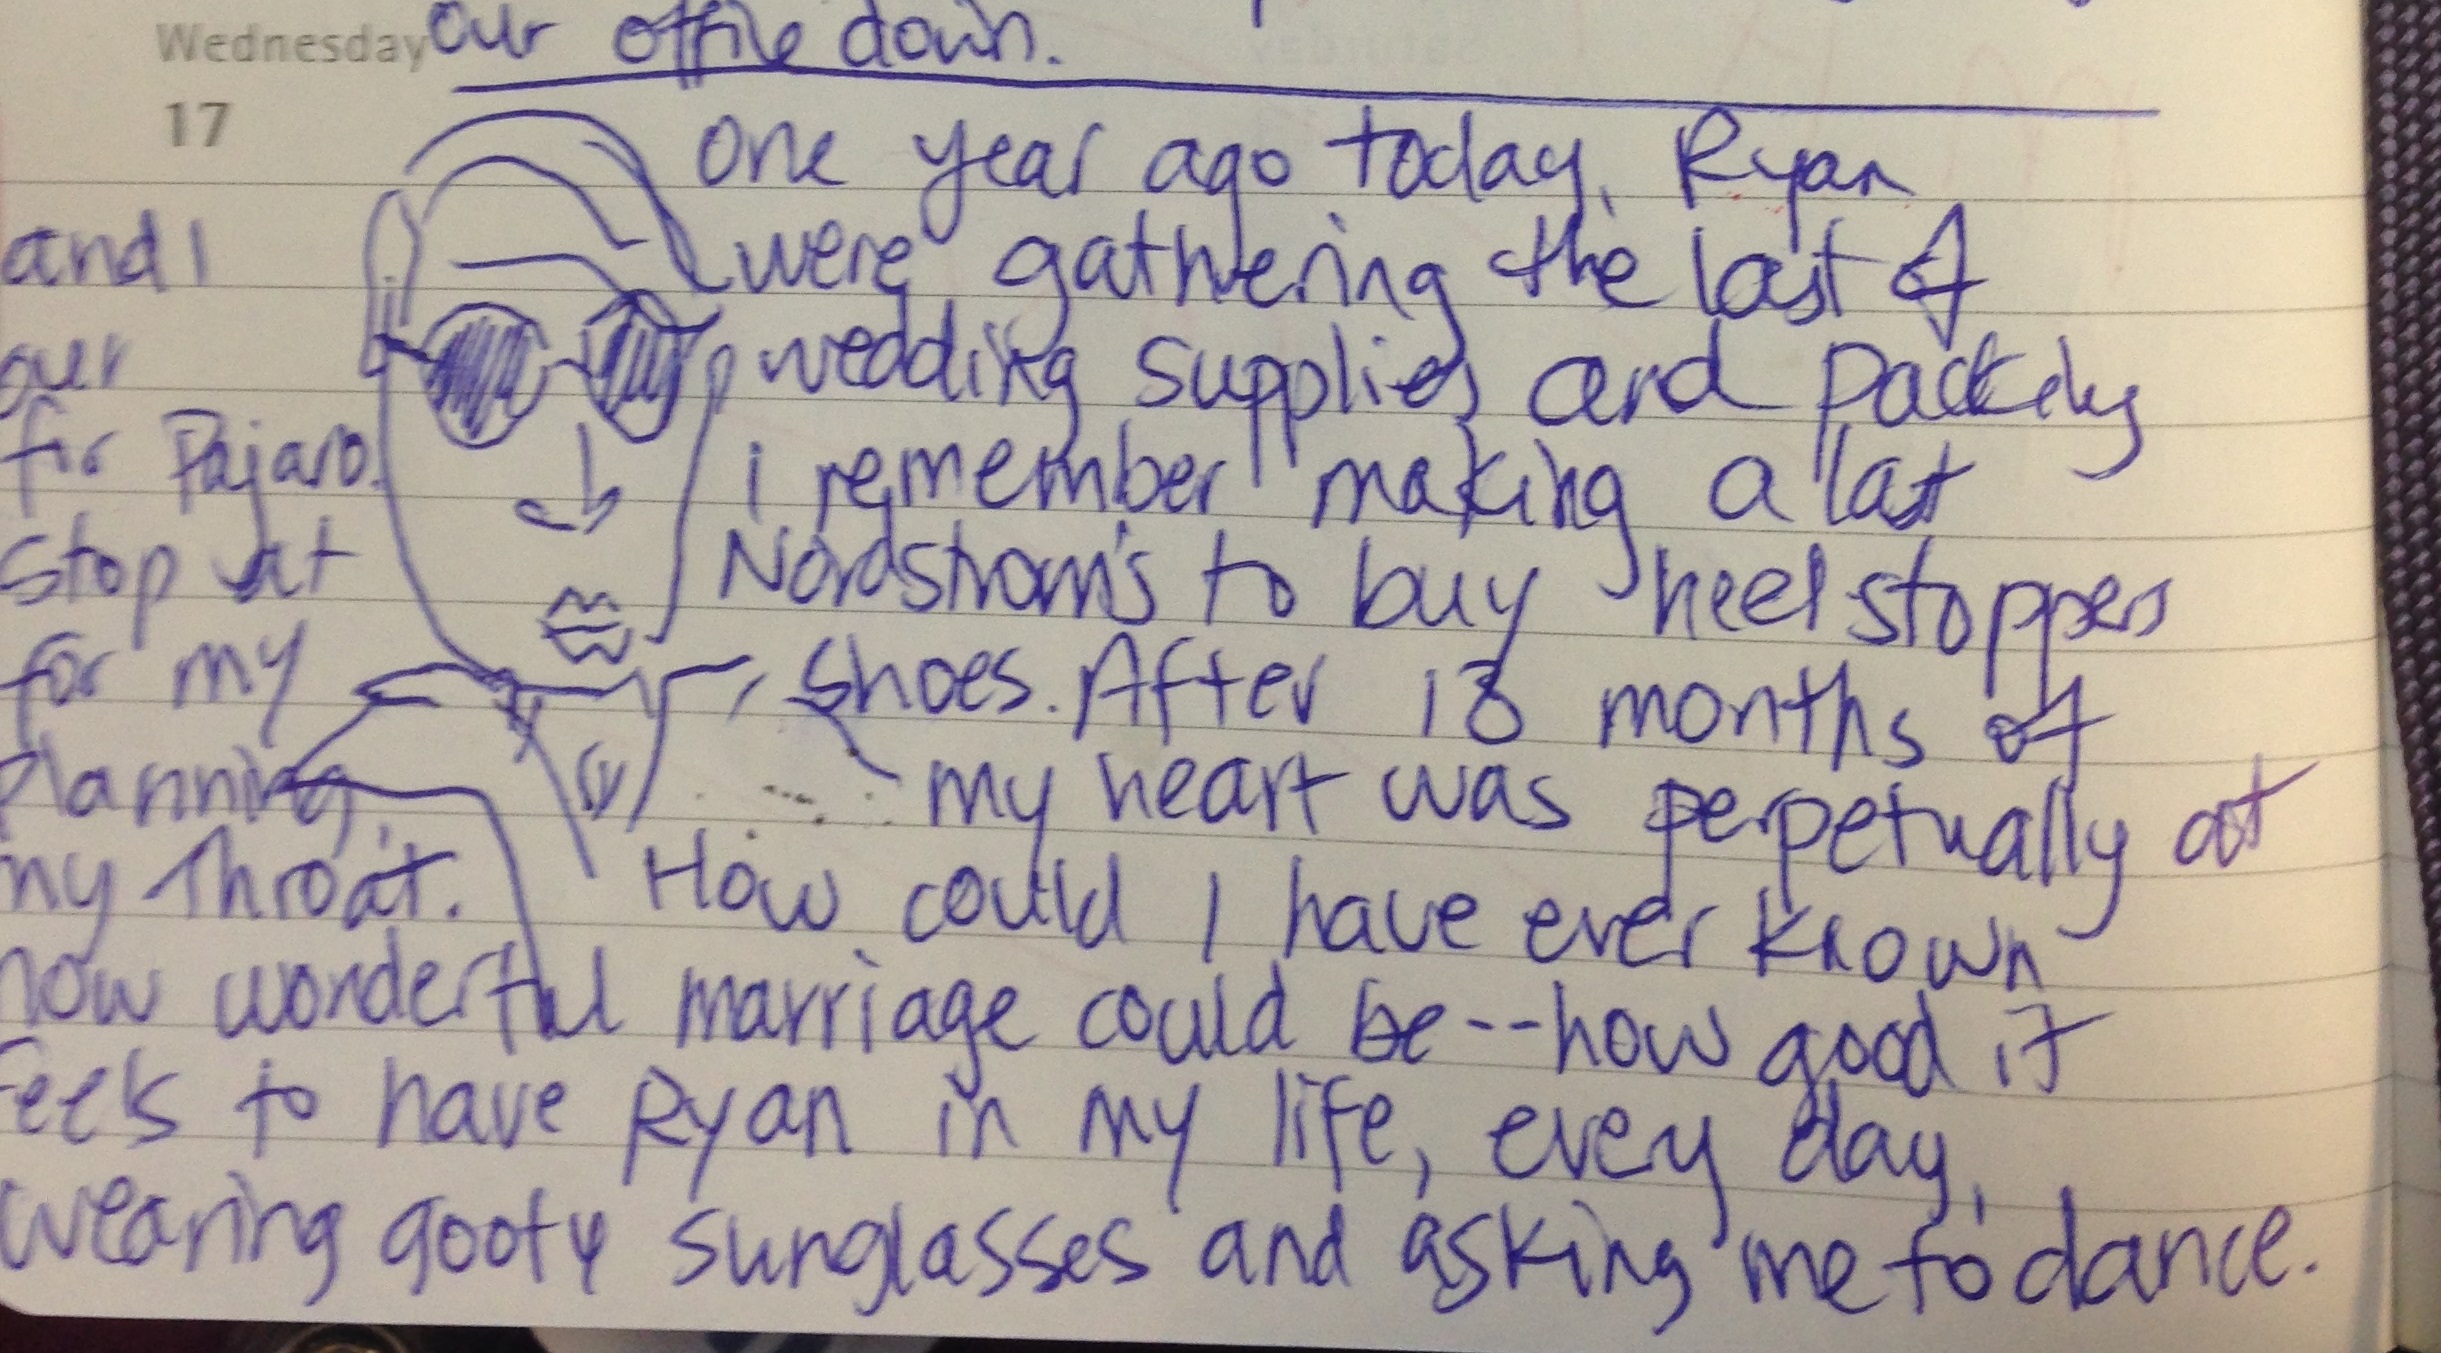 Wednesday our office down.
17
One year ago today, Ryan
and I were gathering the last of
our wedding supplies and packing
for Pajaro. i remember making a last
stop at Nordstrom's to buy heel stoppers
for my shoes. After 18 months of
planning, my heart was perpetually at
my throat. How could I have ever known
how wonderful marriage could be--how good it
feels to have Ryan in my life, every day,
wearing goofy sunglasses and asking me to dance.